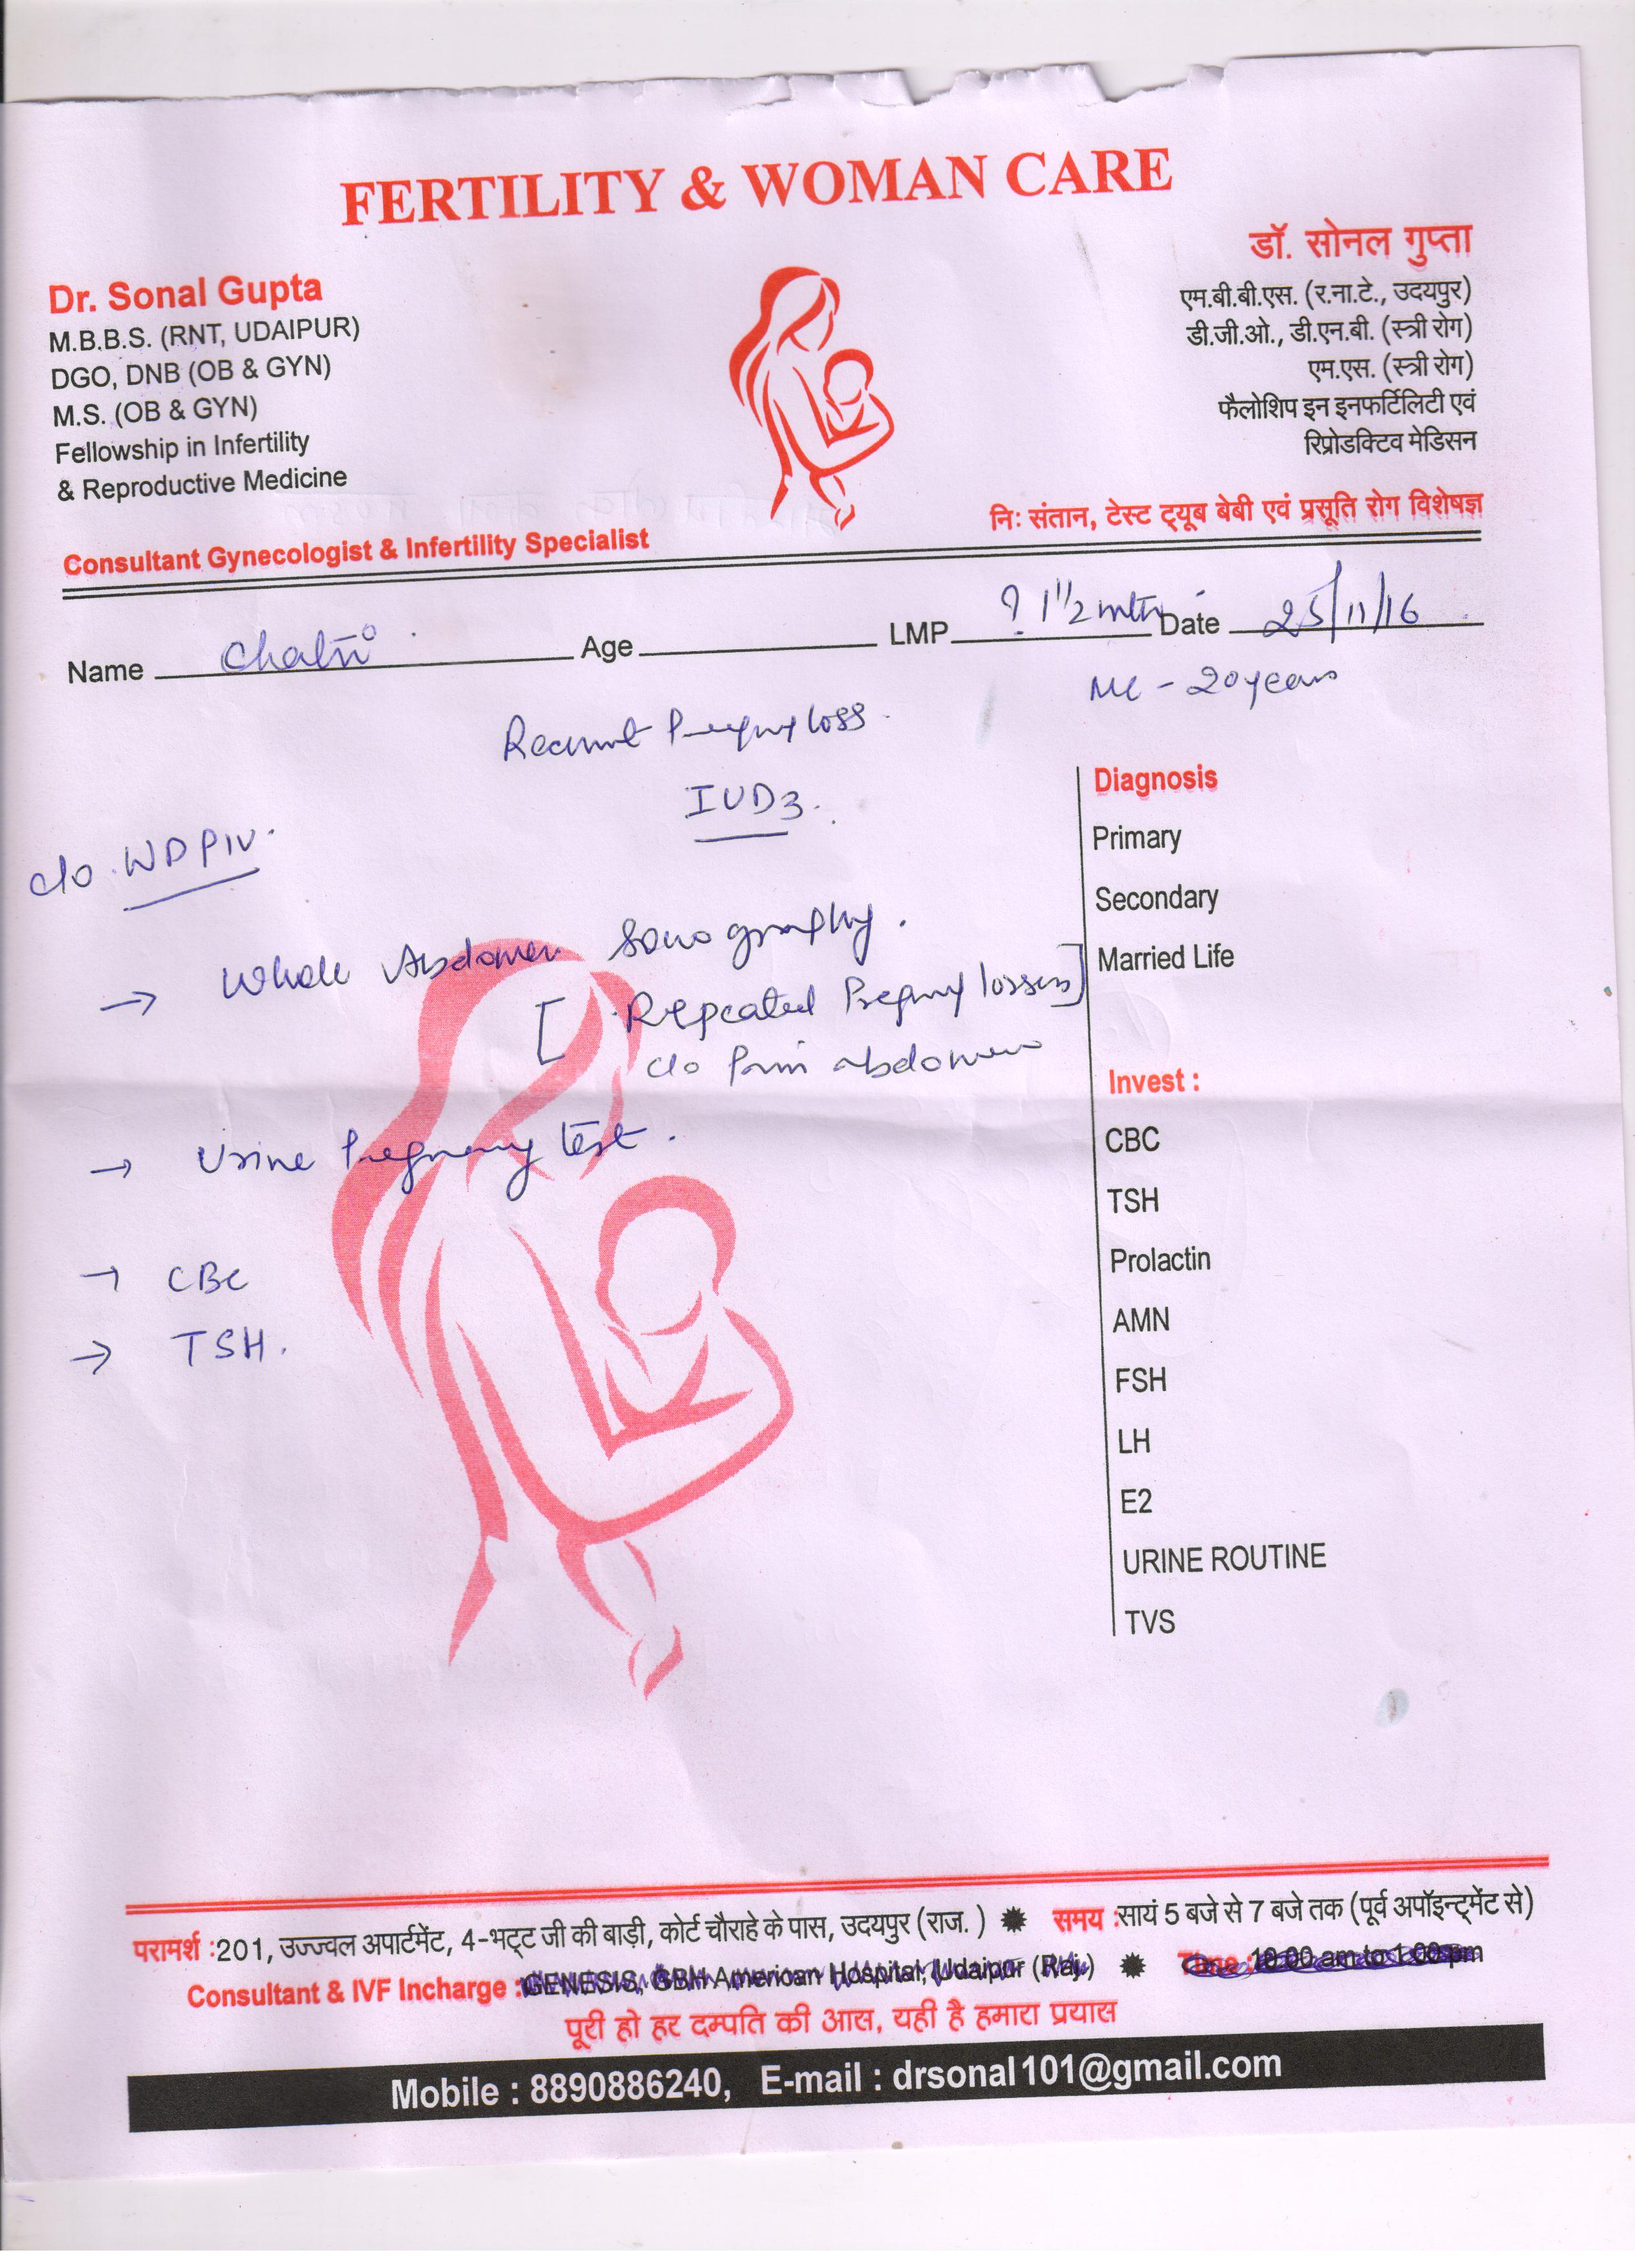 FERTILITY & WOMAN CARE
Dr. Sonal Gupta
M.B.B.S. (RNT, UDAIPUR)
DGO, DNB (OB & GYN)
M.S. (OB & GYN)
Fellowship in Infertility
& Reproductive Medicine
Consultant Gynecologist & Infertility Specialist
डॉ. सोनल गुप्ता
एम.बी.बी.एस. (र.ना.टे., उदयपुर)
डी.जी.ओ., डी.एन.बी. (स्त्री रोग)
एम.एस. (स्त्री रोग)
फैलोशिप इन इनफर्टिलिटी एवं
रिप्रोडक्टिव मेडिसन
निः संतान, टेस्ट ट्यूब बेबी एवं प्रसूति रोग विशेषज्ञ
Name Age LMP ? 1 1/2 mth Date 25/11/16
20 years
Recurrent Pregnancy loss.
IUD3.
c/o
→ Whole Abdomen Sonography.
[Repeated Pregnancy losses]
c/o Pain abdomen
→ Urine Pregnancy test.
→ CBC
→ TSH.
Diagnosis
Primary
Secondary
Married Life
Invest :
CBC
TSH
Prolactin
AMN
FSH
LH
E2
URINE ROUTINE
TVS
परामर्श : 201, उज्ज्वल अपार्टमेंट, 4-भट्ट जी की बाड़ी, कोर्ट चौराहे के पास, उदयपुर (राज. ) समय : सायं 5 बजे से 7 बजे तक (पूर्व अपॉइन्ट्मेंट से)
Consultant & IVF Incharge : GENESIS, GBH American Hospital, Udaipur (Raj.) Time : 10.00 am to 1.00 pm
पूरी हो हर दम्पति की आस, यही है हमारा प्रयास
Mobile : 8890886240, E-mail : drsonal101@gmail.com